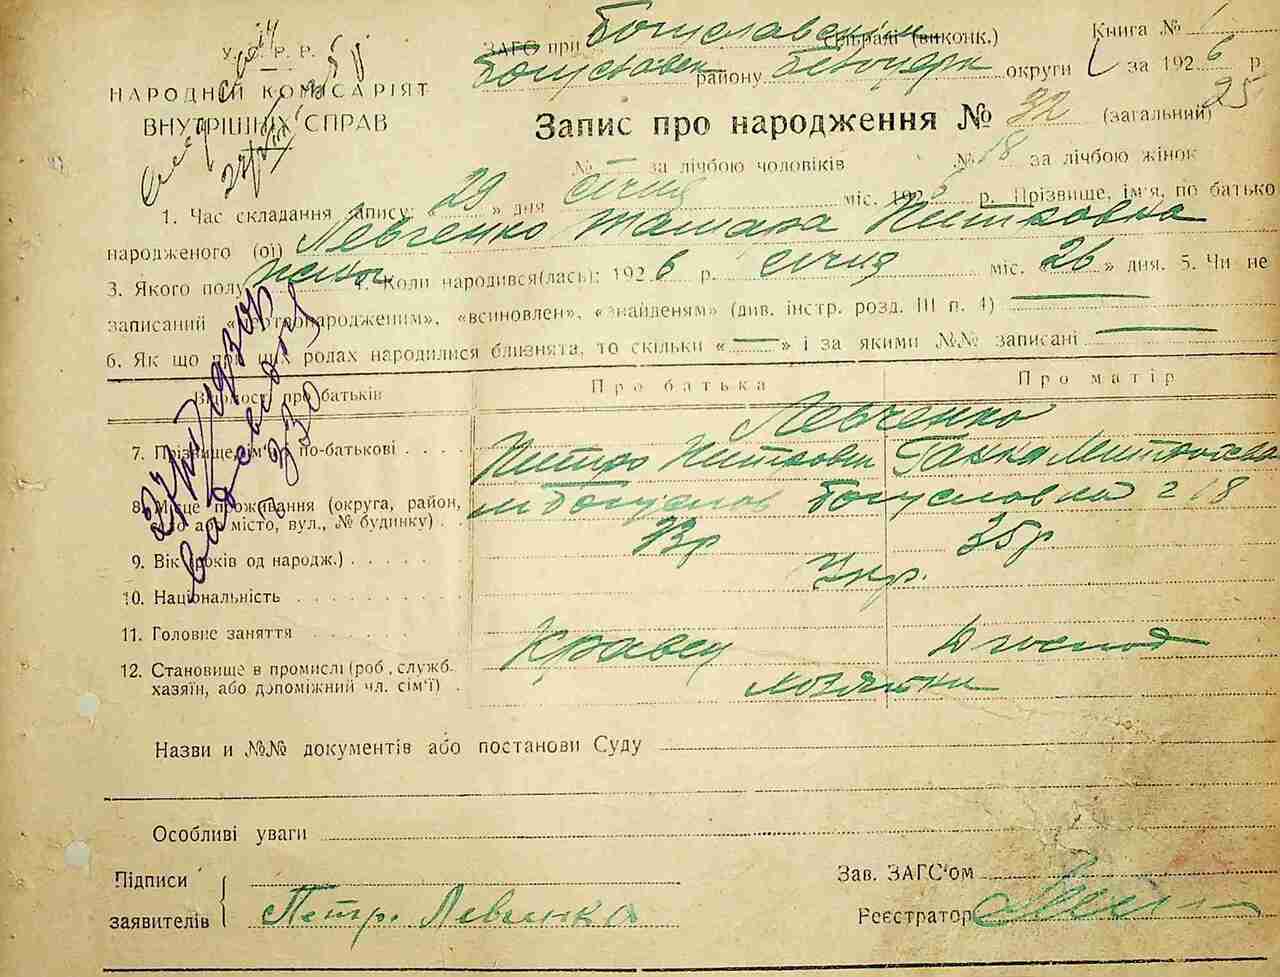 У.С.Р.Р.
НАРОДНІЙ КОМІСАРІЯТ
ВНУТРІШНІХ СПРАВ
ЗАГС при Богуславській сільраді (виконк.)
Богуславськ району Білоцерк округи
Книга № 1
за 1926 р.
Запис про народження № 32 (загальний) 25
№ за лічбою чоловіків № 18 за лічбою жінок
1. Час складання запису: „29" дня січня міс. 1926 р. Прізвище, ім'я, по батько
народженого (ої) Левченко Тамара Петровна
3. Якого полу жіноч 4. Коли народився(лась): 1926 р. січня міс. „26" дня. 5. Чи не
записаний «мертвонародженим», «всиновлен», «знайденям» (див. інстр. розд. III п. 4)
6. Як що при цих родах народилися близнята, то скільки «—» і за якими №№ записані
Відомості про батьків
Про батька
Про матір
Левченко
7. Прізвище, ім'я, по-батькові
Петро Петрович
Ганна Митрофанівна
8. Місце проживання (округа, район,
село або місто, вул., № будинку)
м Богуслав Богуслов ка 218
9. Вік (років од народж.)
33р
35р
10. Національність
Укр.
11. Головне заняття
Кравец
Д господ
12. Становище в промислі (роб., служб.
хазяїн, або допоміжний чл. сім'ї)
хозяйки
Назви и №№ документів або постанови Суду
Особливі уваги
Підписи
заявителів
Петр. Левченко
Зав. ЗАГС'ом
Реєстратор